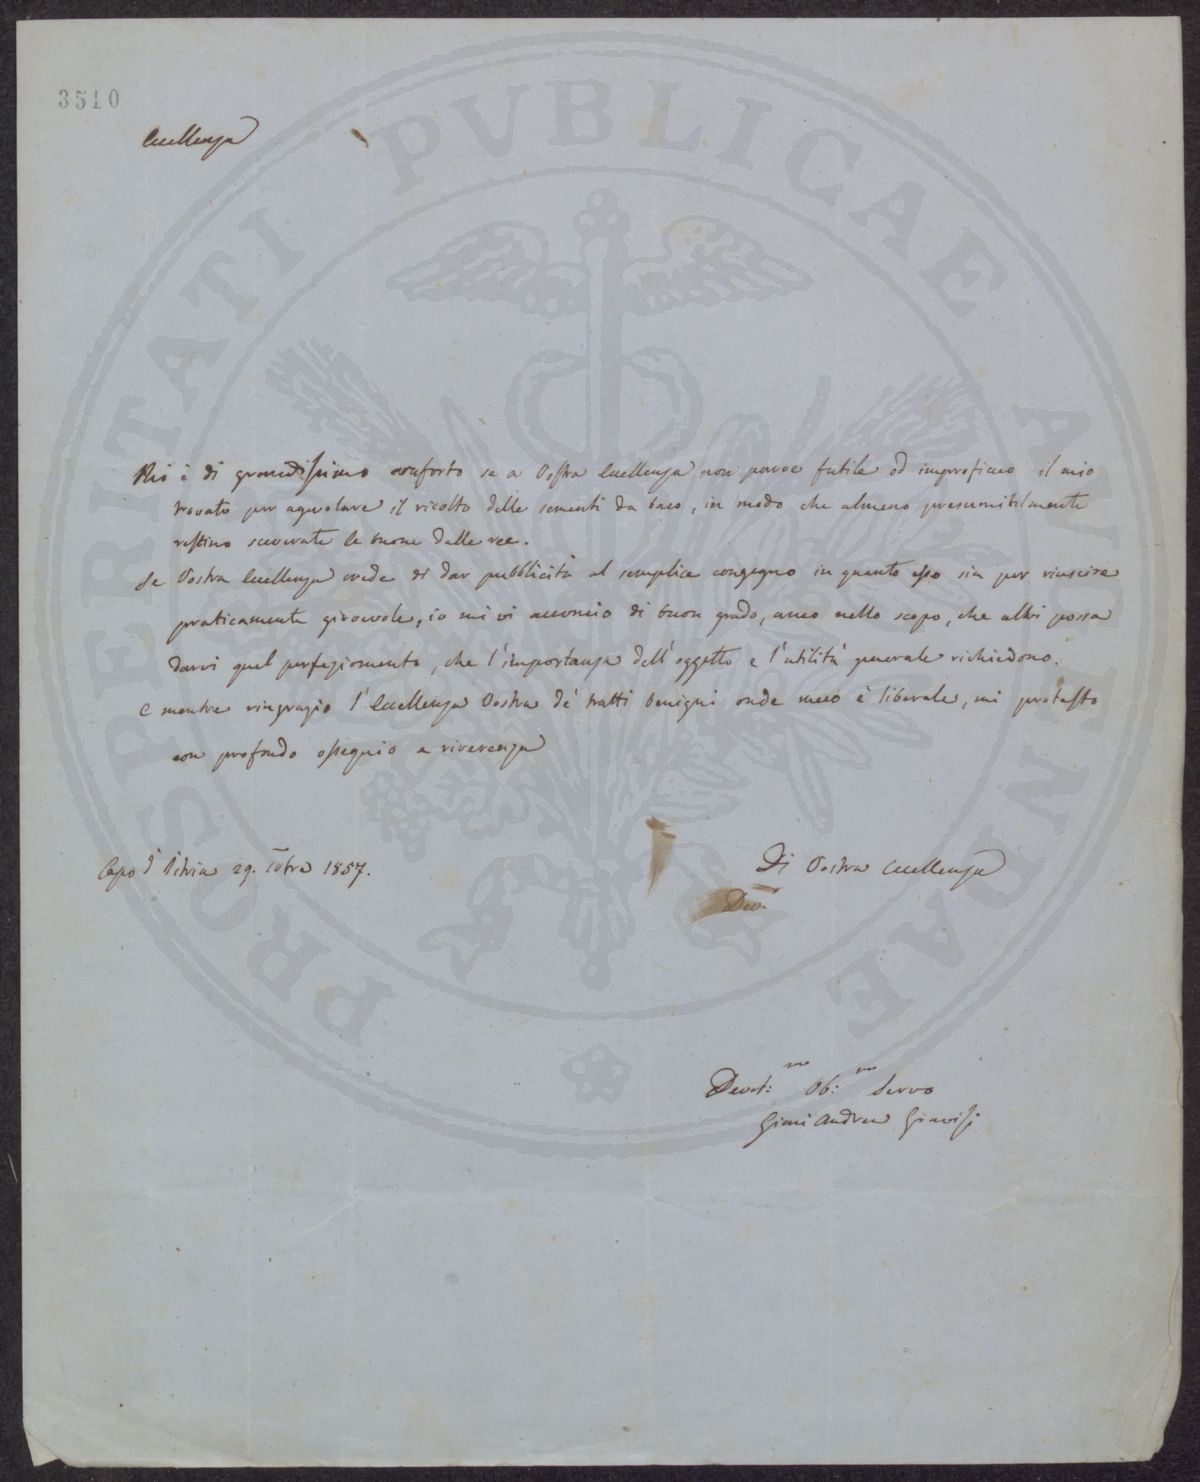 3510
Eccellenza
Mi è di grandissimo conforto se a Vostra Eccellenza non parve futile od improficuo il mio
trovato per agevolare il ricolto delle sementi da baco, in modo che almeno presumibilmente
restino sceverate le buone dalle ree.
Se Vostra Eccellenza crede di dar pubblicità al semplice congegno in quanto esso sia per riuscire
praticamente giovevole, io mi vi acconcio di buon grado, anco nello scopo, che altri possa
darvi quel perfezionamento, che l'importanza dell'oggetto e l'utilità generale richiedono.
E mentre ringrazio l'Eccellenza Vostra de' tratti benigni onde meco è liberale, mi protesto
con profondo ossequio e riverenza
Capo d'Istria 29. 1857.
Di Vostra Eccellenza
Dev.
Devot:mo Ob:mo Servo
Gian Andrea Gravisi
PROSPERITATI PVBLICAE AVGENDAE